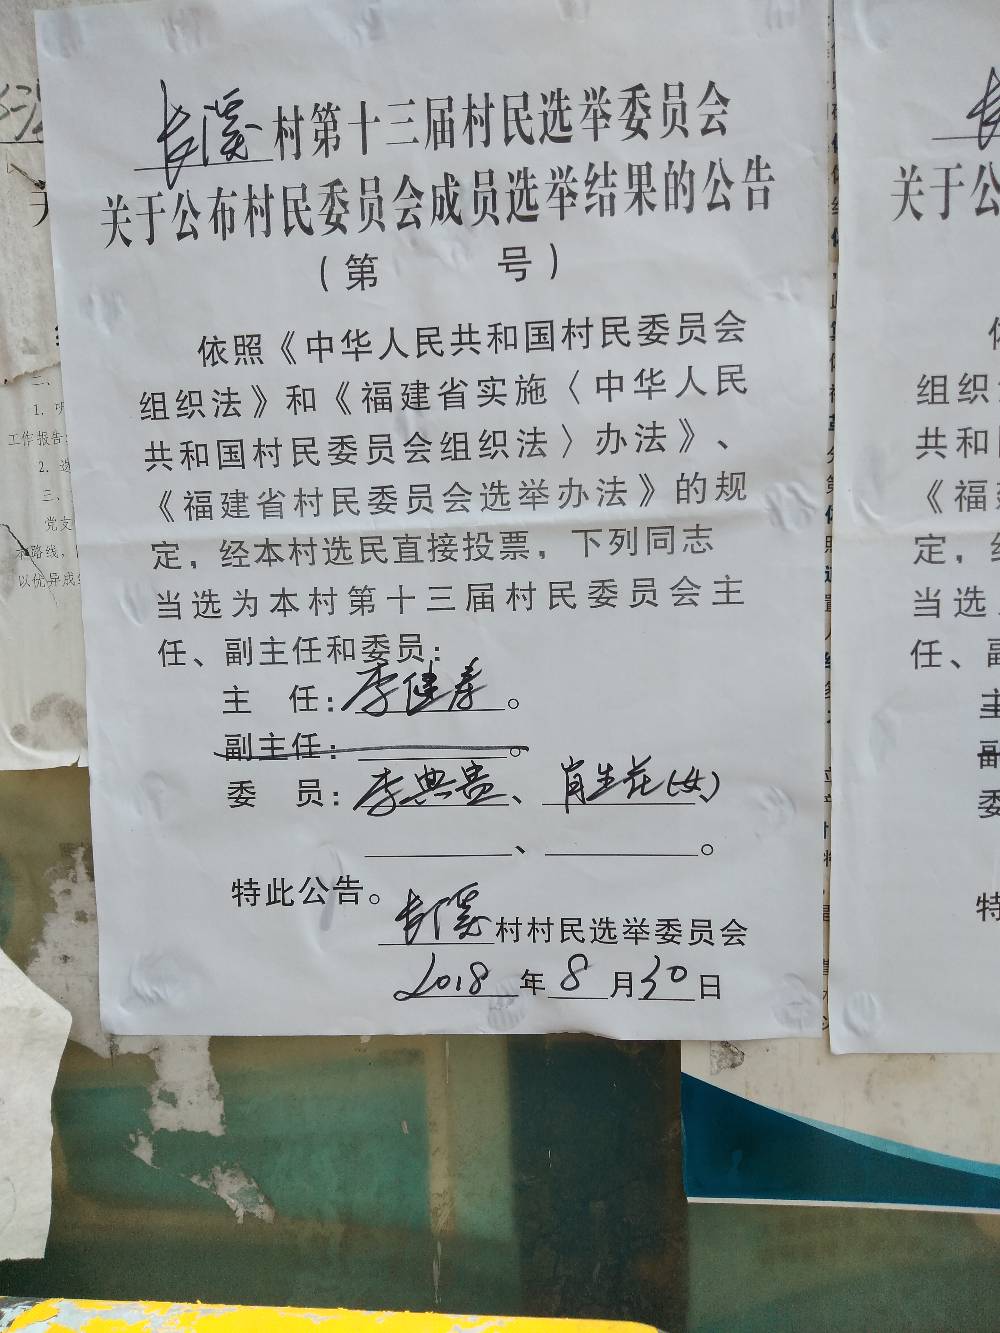 长溪村第十三届村民选举委员会
关于公布村民委员会成员选举结果的公告
（第 号）
依照《中华人民共和国村民委员会
组织法》和《福建省实施〈中华人民
共和国村民委员会组织法〉办法》、
《福建省村民委员会选举办法》的规
定，经本村选民直接投票，下列同志
当选为本村第十三届村民委员会主
任、副主任和委员：
主 任：李健寿。
副主任：。
委 员：李典贵、肖生花(女)
、。
特此公告。
长溪村村民选举委员会
2018年8月30日
二、
1.
工作报告
2. 选
三、
党支
本路线，
以优异成绩
关于公
组织
共和国
《福建
定，经
当选
任、副
主
副
委
特